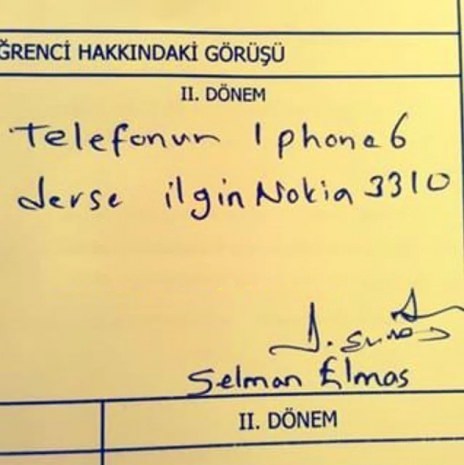 ĞRENCİ HAKKINDAKİ GÖRÜŞÜ
II. DÖNEM
Telefonun Iphone 6
derse ilgin Nokia 3310
Selman Elmas
II. DÖNEM